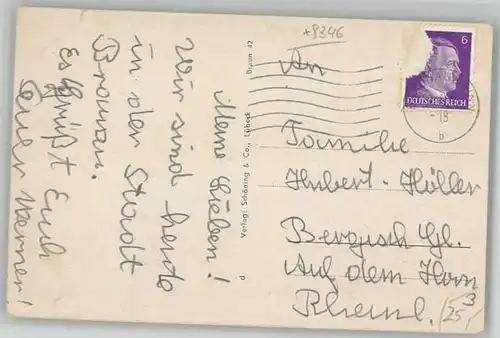 +8346
Meine Lieben!
Wir sind heute
in der Stadt
Braunau.
Es grüßt Euch
Euer Werner!
Braun 42
Verlag: Schöning & Co., Lübeck
d
6
DEUTSCHES REICH
-18
b
An
Familie
Hubert Höller
Bergisch Gl.
Auf dem Horn
Rheinl.